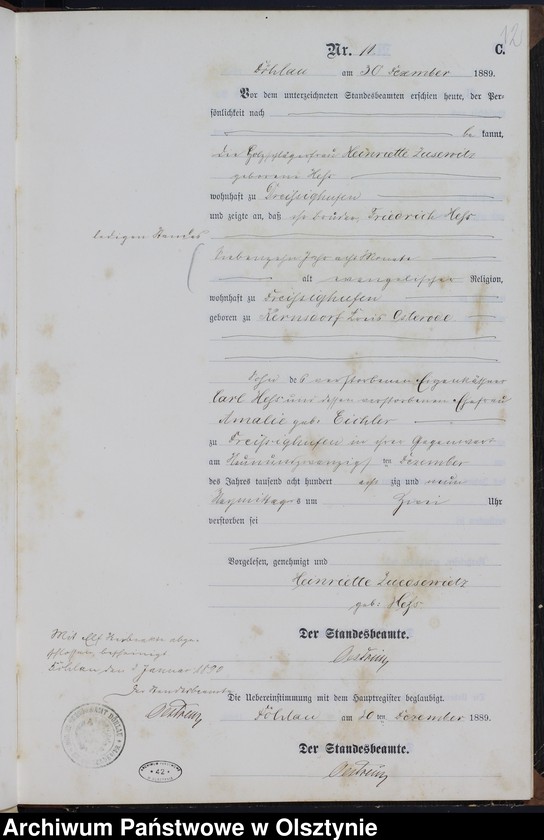 12
Nr. 11. C.
Döhlau am 30 Dezember 1889.
Vor dem unterzeichneten Standesbeamten erschien heute, der Per-
sönlichkeit nach
be kannt,
die Heinriette
geborene Hess
wohnhaft zu Dreissighufen
und zeigte an, daß ihr Bruder Friedrich Hess
ledigen Standes
Siebenzehn Jahr acht Monate
alt evangelischer Religion,
wohnhaft zu Dreissighufen
geboren zu Kernsdorf Kreis Osterode
Sohn des verstorbenen Eigenkäthner
Carl Hess und dessen verstorbenen Ehefrau
Amalie geb. Eichler
zu Dreissighufen in ihrer Gegenwart
am Neunundzwanzigsten Dezember
des Jahres tausend acht hundert acht zig und neun
Nachmittags um zwei Uhr
verstorben sei
Vorgelesen, genehmigt und
Heinriette
geb. Hess.
Der Standesbeamte.
Mit elf abge-
schlossen, bescheinigt
Döhlau, den Januar 1890
Der Standesbeamte
Die Uebereinstimmung mit dem Hauptregister beglaubigt.
Döhlau am 30 ten Dezember 1889.
Der Standesbeamte.
* 42 *
Archiwum Państwowe w Olsztynie